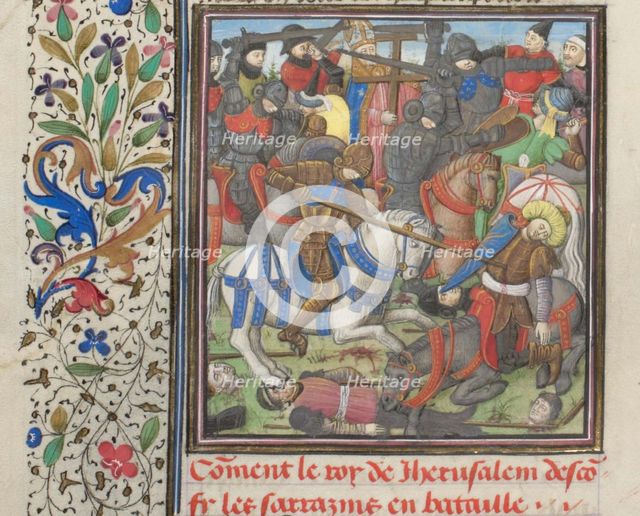 Heritage Heritage
Heritage Heritage
Heritage Heritage
Com̃ent le roy de Jherusalem desco
fr les sarrazins en bataille